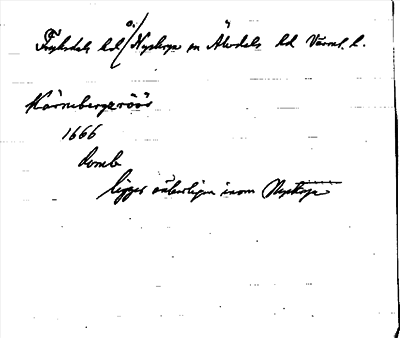 Fryksdals hd / Nyskoga sn Älvdals hd Värml. l.
Kärnebergsröös
1666
domb
ligger
inom Nyskoga